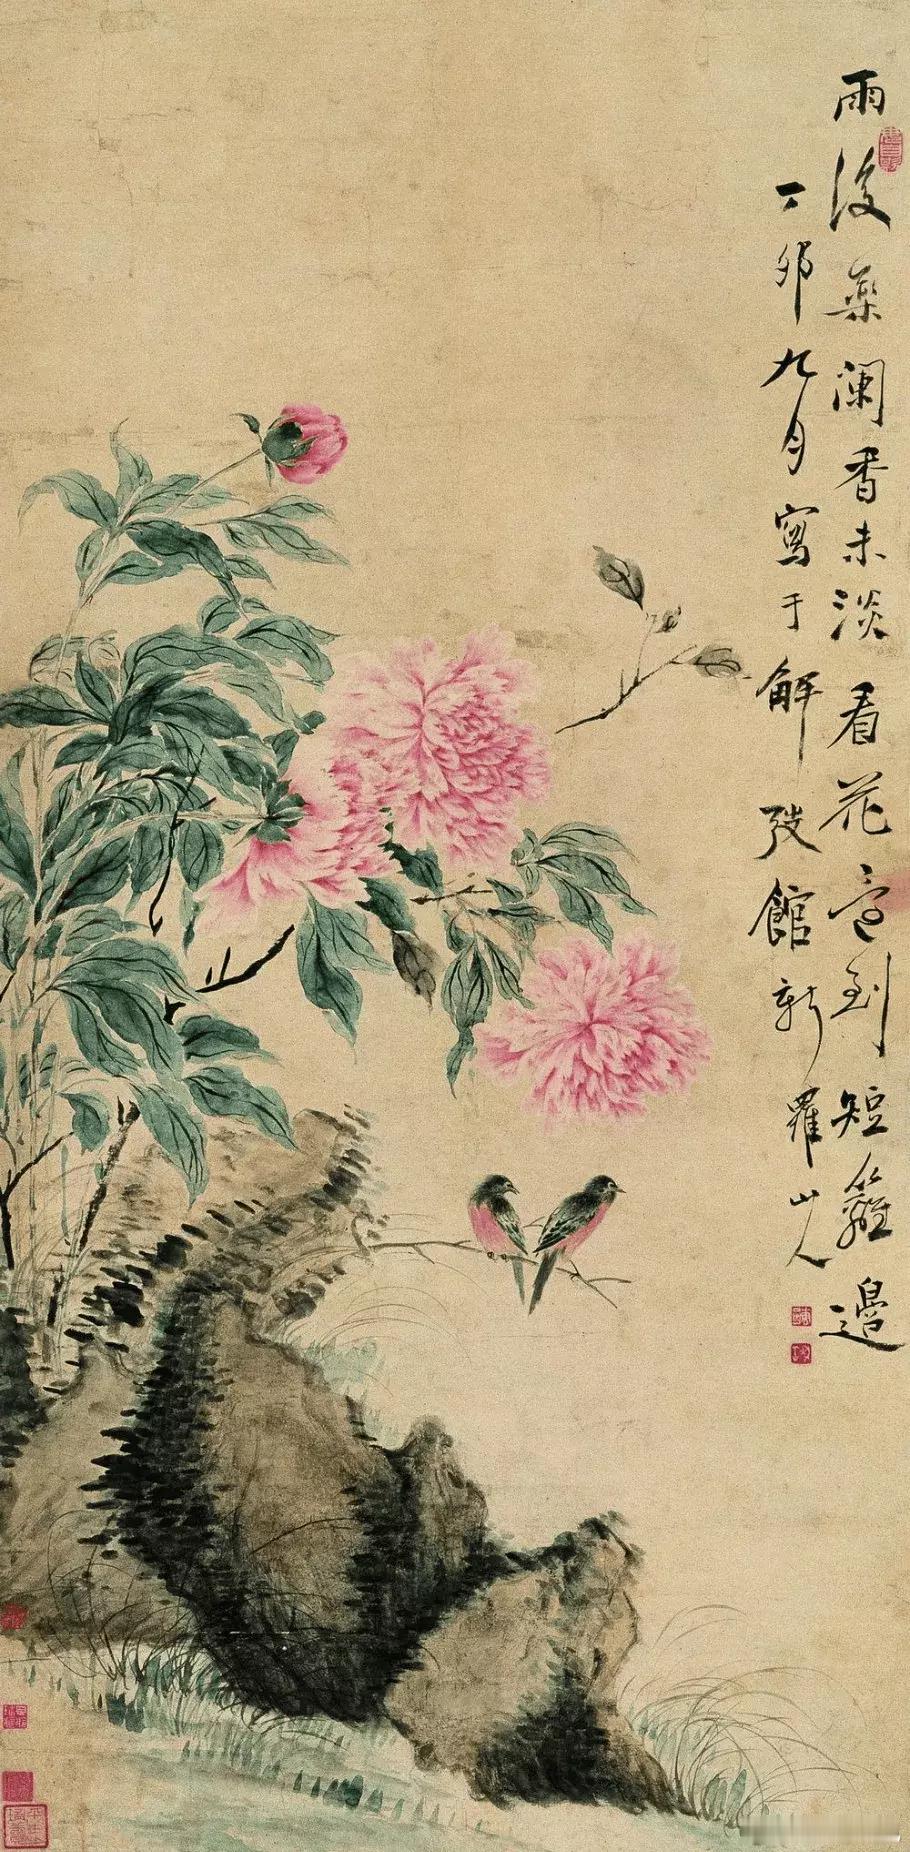 雨後藥瀾香未淡看花意到短籬邊
丁卯九月寫于解弢館新羅山人